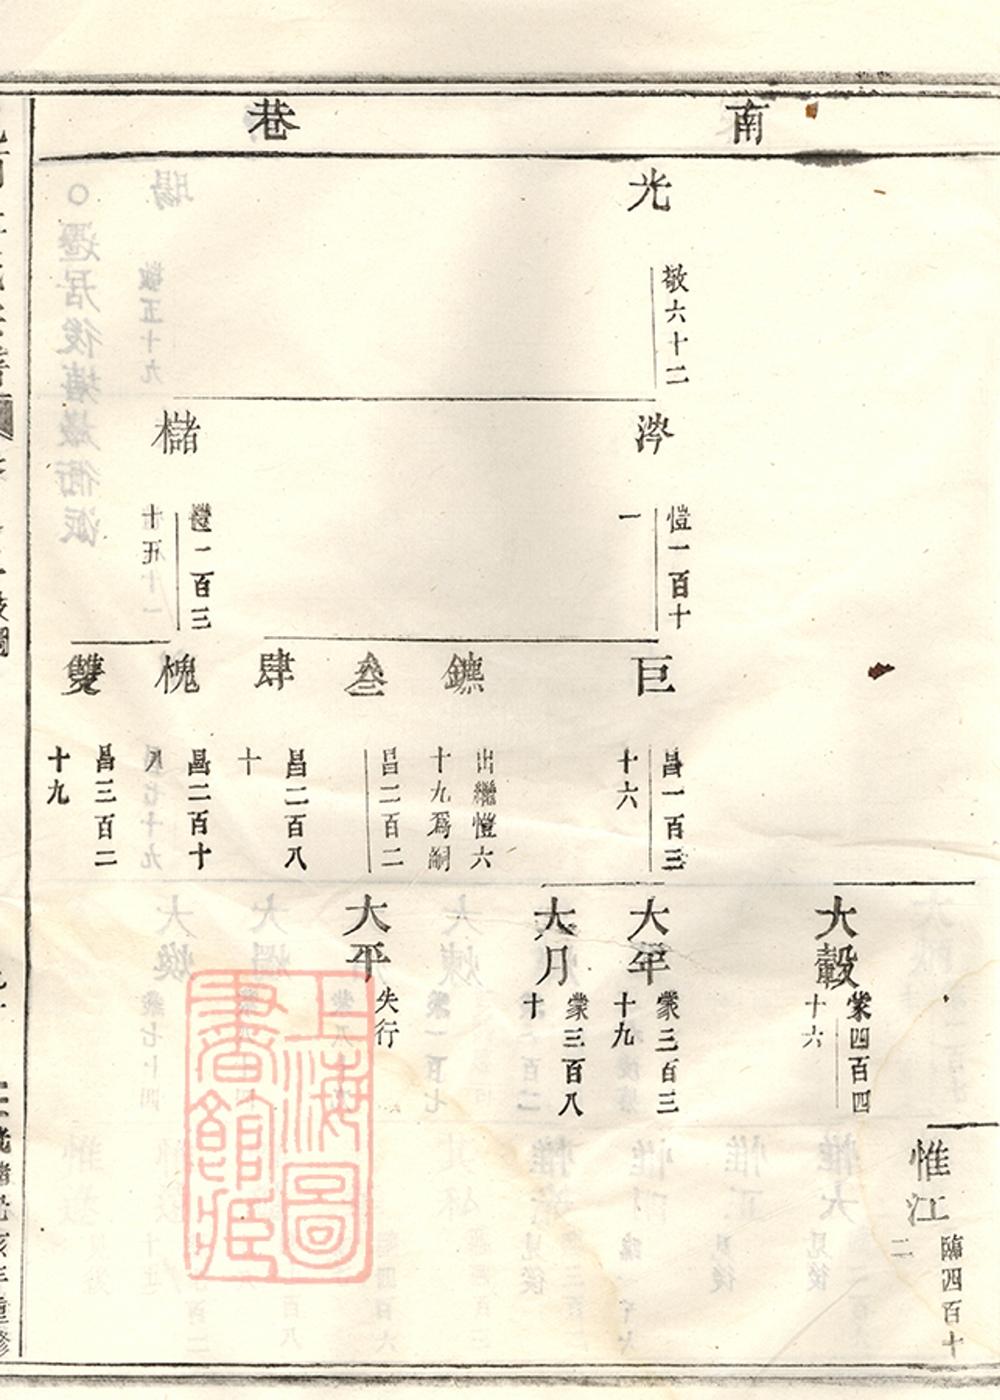 南巷
光
敬六十二
涔
愷一百十
一
櫧
愷一百三
十五
巨
昌一百三
十六
鑣
出繼愷六
十九爲嗣
叁
昌二百二
肆
昌二百八
十
槐
昌二百十
八
雙
昌三百二
十九
大轂
蒙四百四
十六
大年
蒙三百三
十九
大月
蒙三百八
十
大平
失行
惟江
臨四百十
二
上海圖
書館藏